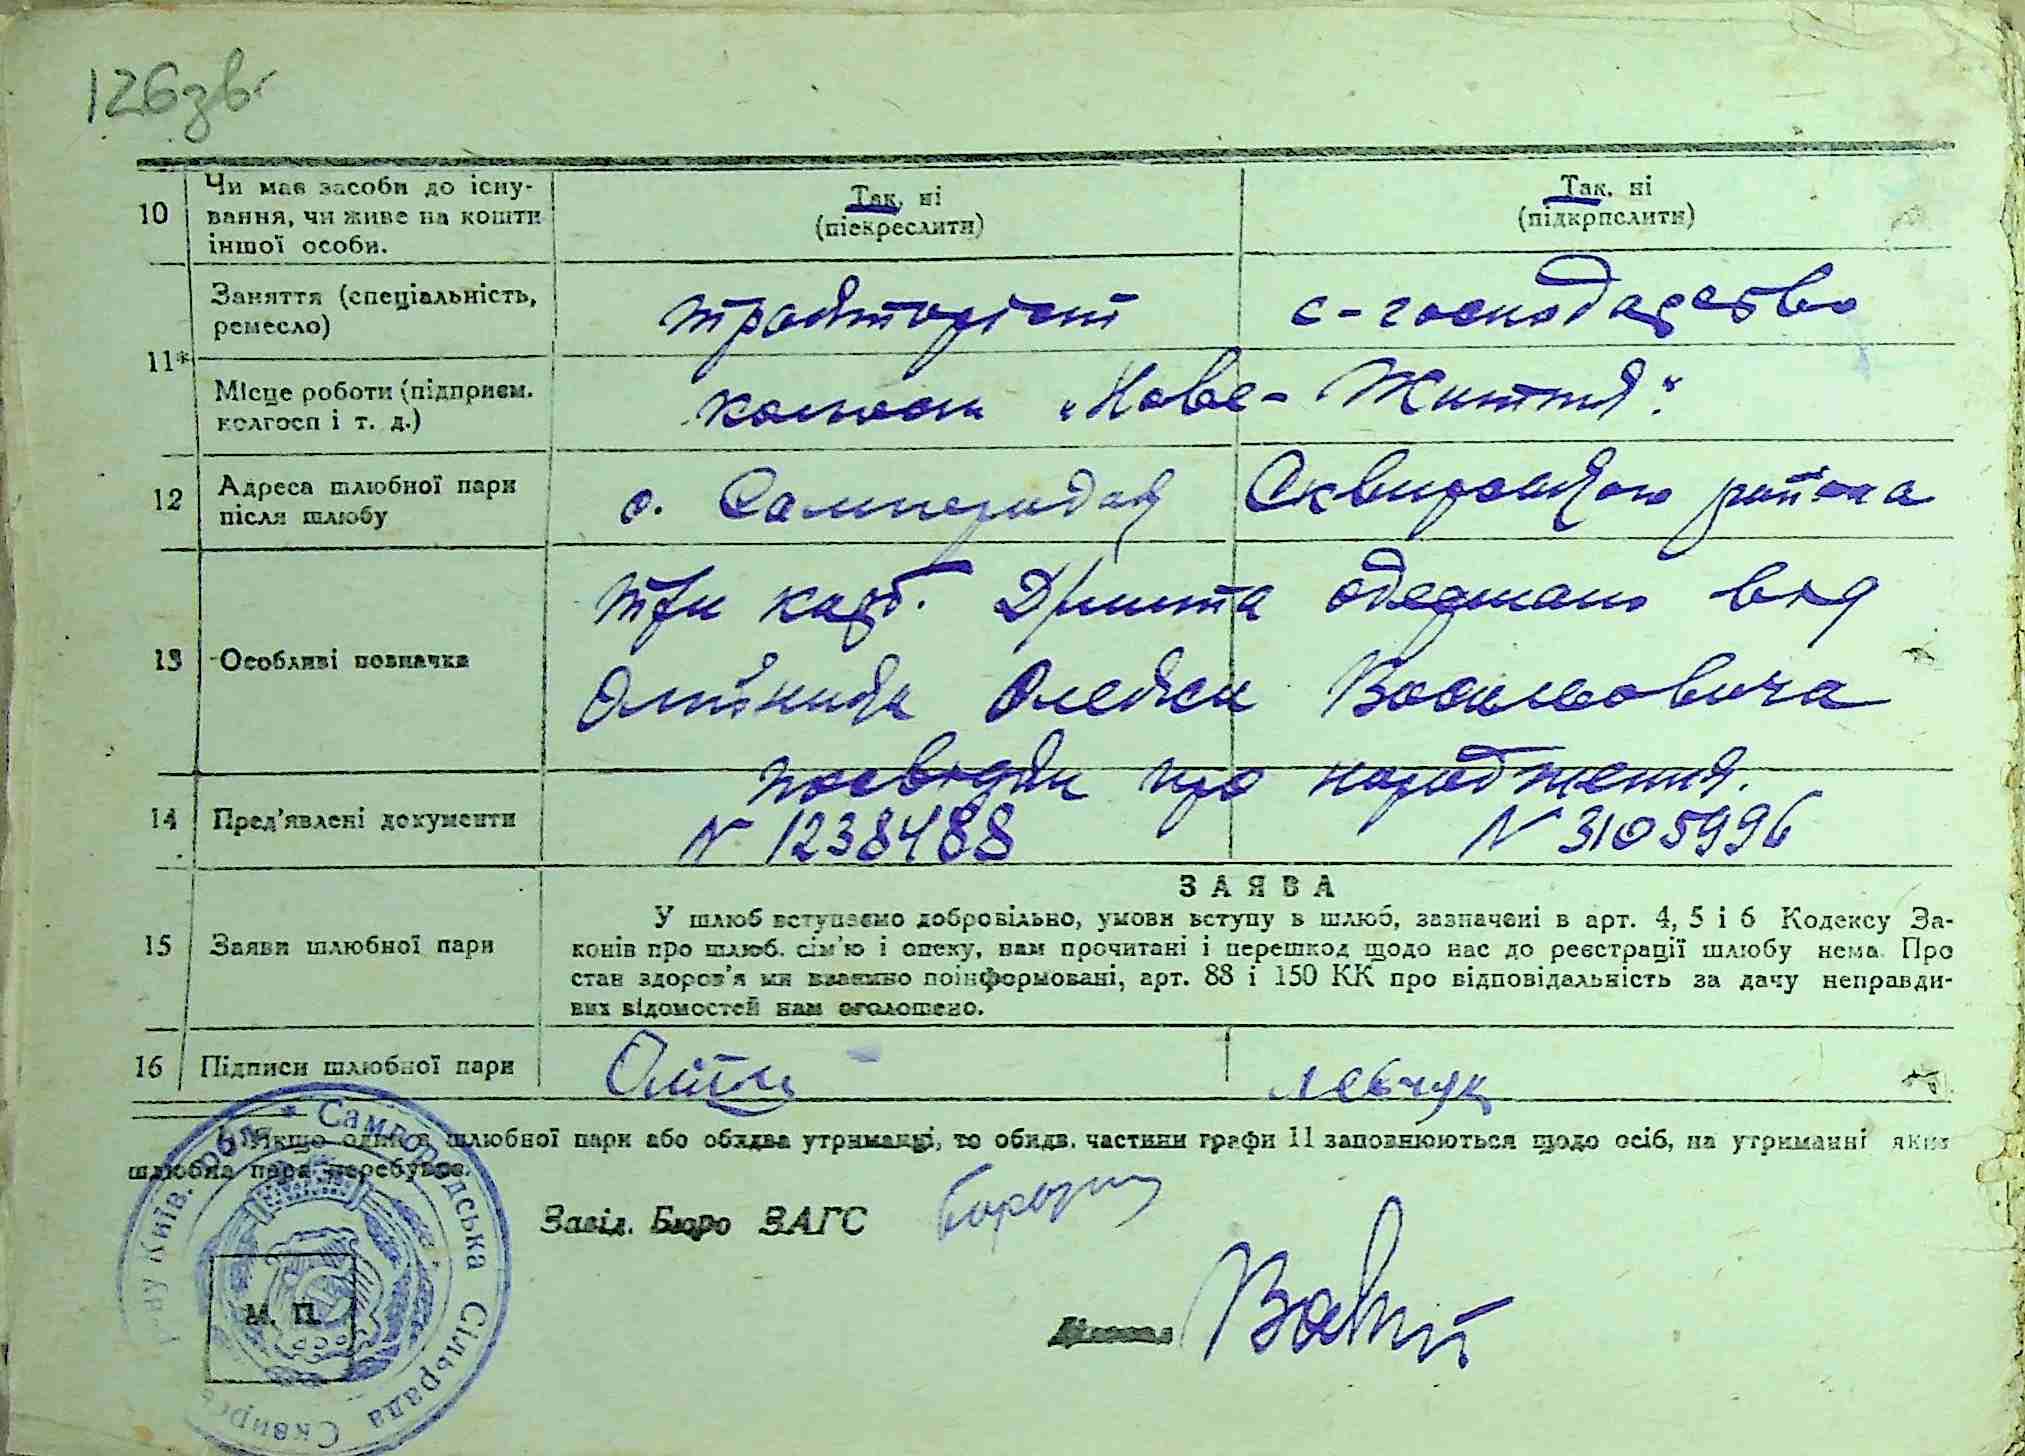 126зв.
10 Чи має засоби до існу-
вання, чи живе на кошти
іншої особи.
Так, ні
(підкреслити)
Так, ні
(підкрпслити)
11*
Заняття (спеціальність,
ремесло)
тракторіст
с-господарство
Місце роботи (підприєм.
колгосп і т. д.)
колгосп „Нове-Життя“.
12 Адреса шлюбної пари
після шлюбу
с. Самгородок Сквирського района
13 Особливі позначка
три карб. Држмита одержано від
Олійника Олекси Васильовича
посвідки про народження.
14 Пред'явлені документи
N 1238488
N 3105996
15 Заяви шлюбної пари
ЗАЯВА
У шлюб вступаємо добровільно, умови вступу в шлюб, зазначені в арт. 4, 5 і 6 Кодексу За-
конів про шлюб. сім'ю і опеку, нам прочитані і перешкод щодо нас до реєстрації шлюбу нема. Про
стан здоров'я ми взаємно поінформовані, арт. 88 і 150 КК про відповідальність за дачу неправди-
вих відомостей нам оголошено.
16 Підписи шлюбної пари
Олій
Левчук
Якщо один з шлюбної пари або обидва утриманці, то обидв. частини графи 11 заповнюються щодо осіб, на утриманні яких
шлюбна пара перебуває.
Завід. Бюро ЗАГС
Діловод
М. П.
Самгородська Сільрада Сквирськ р-ну Київ. обл.